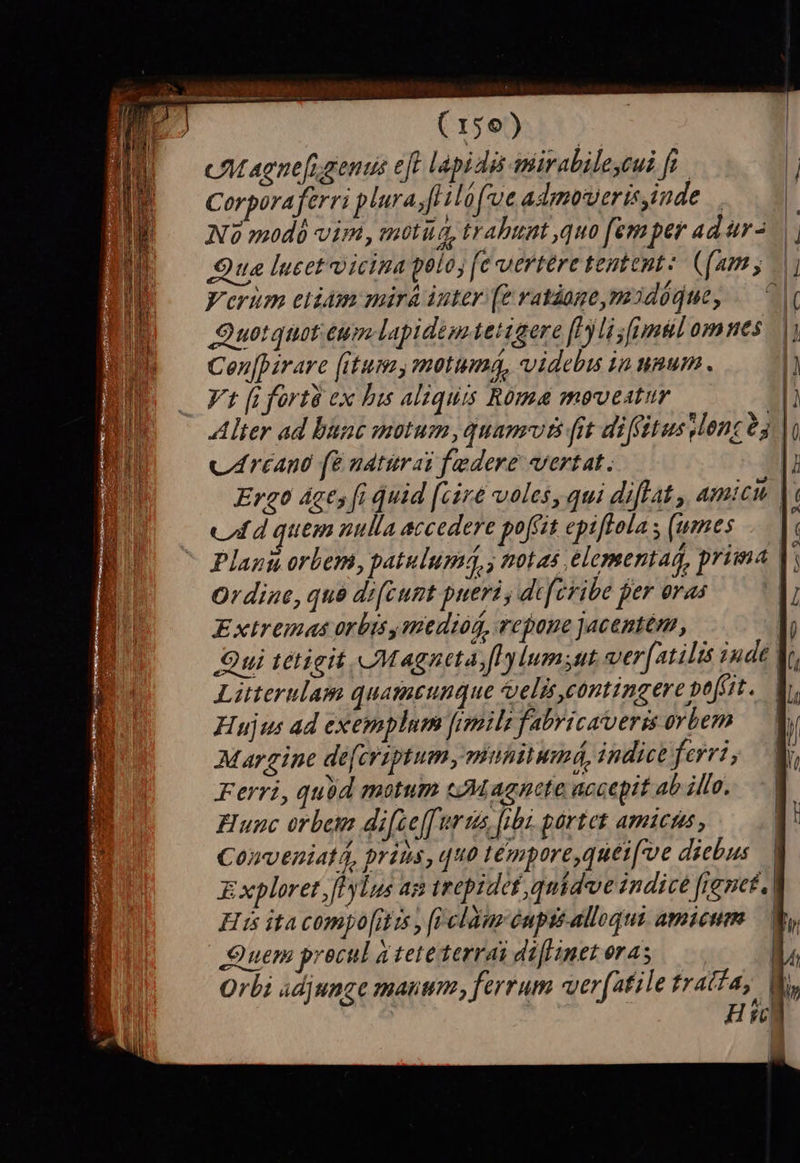 (150)
Magneſi genus eſt lapidis mirabile, cui ſi
Corpora ferri plura, ſtiloſve admoveris, inde
Nō modò vim, motūq, trahunt, quo ſemper ad urſ
Que lucet vicina polo, ſe vertere tentent: (ſam,
Verùm etiam mirâ inter ſe ratione, modóque,
Quotquot eum lapidem tetigere ſtyli, ſimul omnes
Conſpirare ſitum, motumq, videbis in unum.
Vt ſi fortè ex his aliquis Romæ moveatur
Alter ad hunc motum, quamvis ſit diſsitus longè,
Arcano ſe naturai fœdere vertat.
Ergo age, ſi quid ſcire voles, qui diſtat, amicū
Ad quem nulla accedere poſsit epiſtola; ſumes
Planū orbem, patulumq,; notas, elementaq, prima
Ordine, quo diſcunt pueri, deſcribe per oras
Extremas orbis, medioq, repone jacentem,
Qui tetigit Magneta, ſtylum; ut verſatilis inde
Litterulam quamcunque velis, contingere poſsit.
Hujus ad exemplum ſimili fabricaveris orbem
Margine deſcriptum, munitumq, indice ferri,
Ferri, quòd motum Magnete accepit ab illo.
Hunc orbem diſceſſurus, ſibi portet amicus,
Conveniatq, priùs, quo tempore, queiſve diebus
Exploret, ſtylus an trepidet, quidve indice ſignet.
His ita compoſitis, ſi clàm cupis alloqui amicum
Quem procul à te te terrai diſtinet ora;
Orbi adjunge manum, ferrum verſatile tracta,
Hic